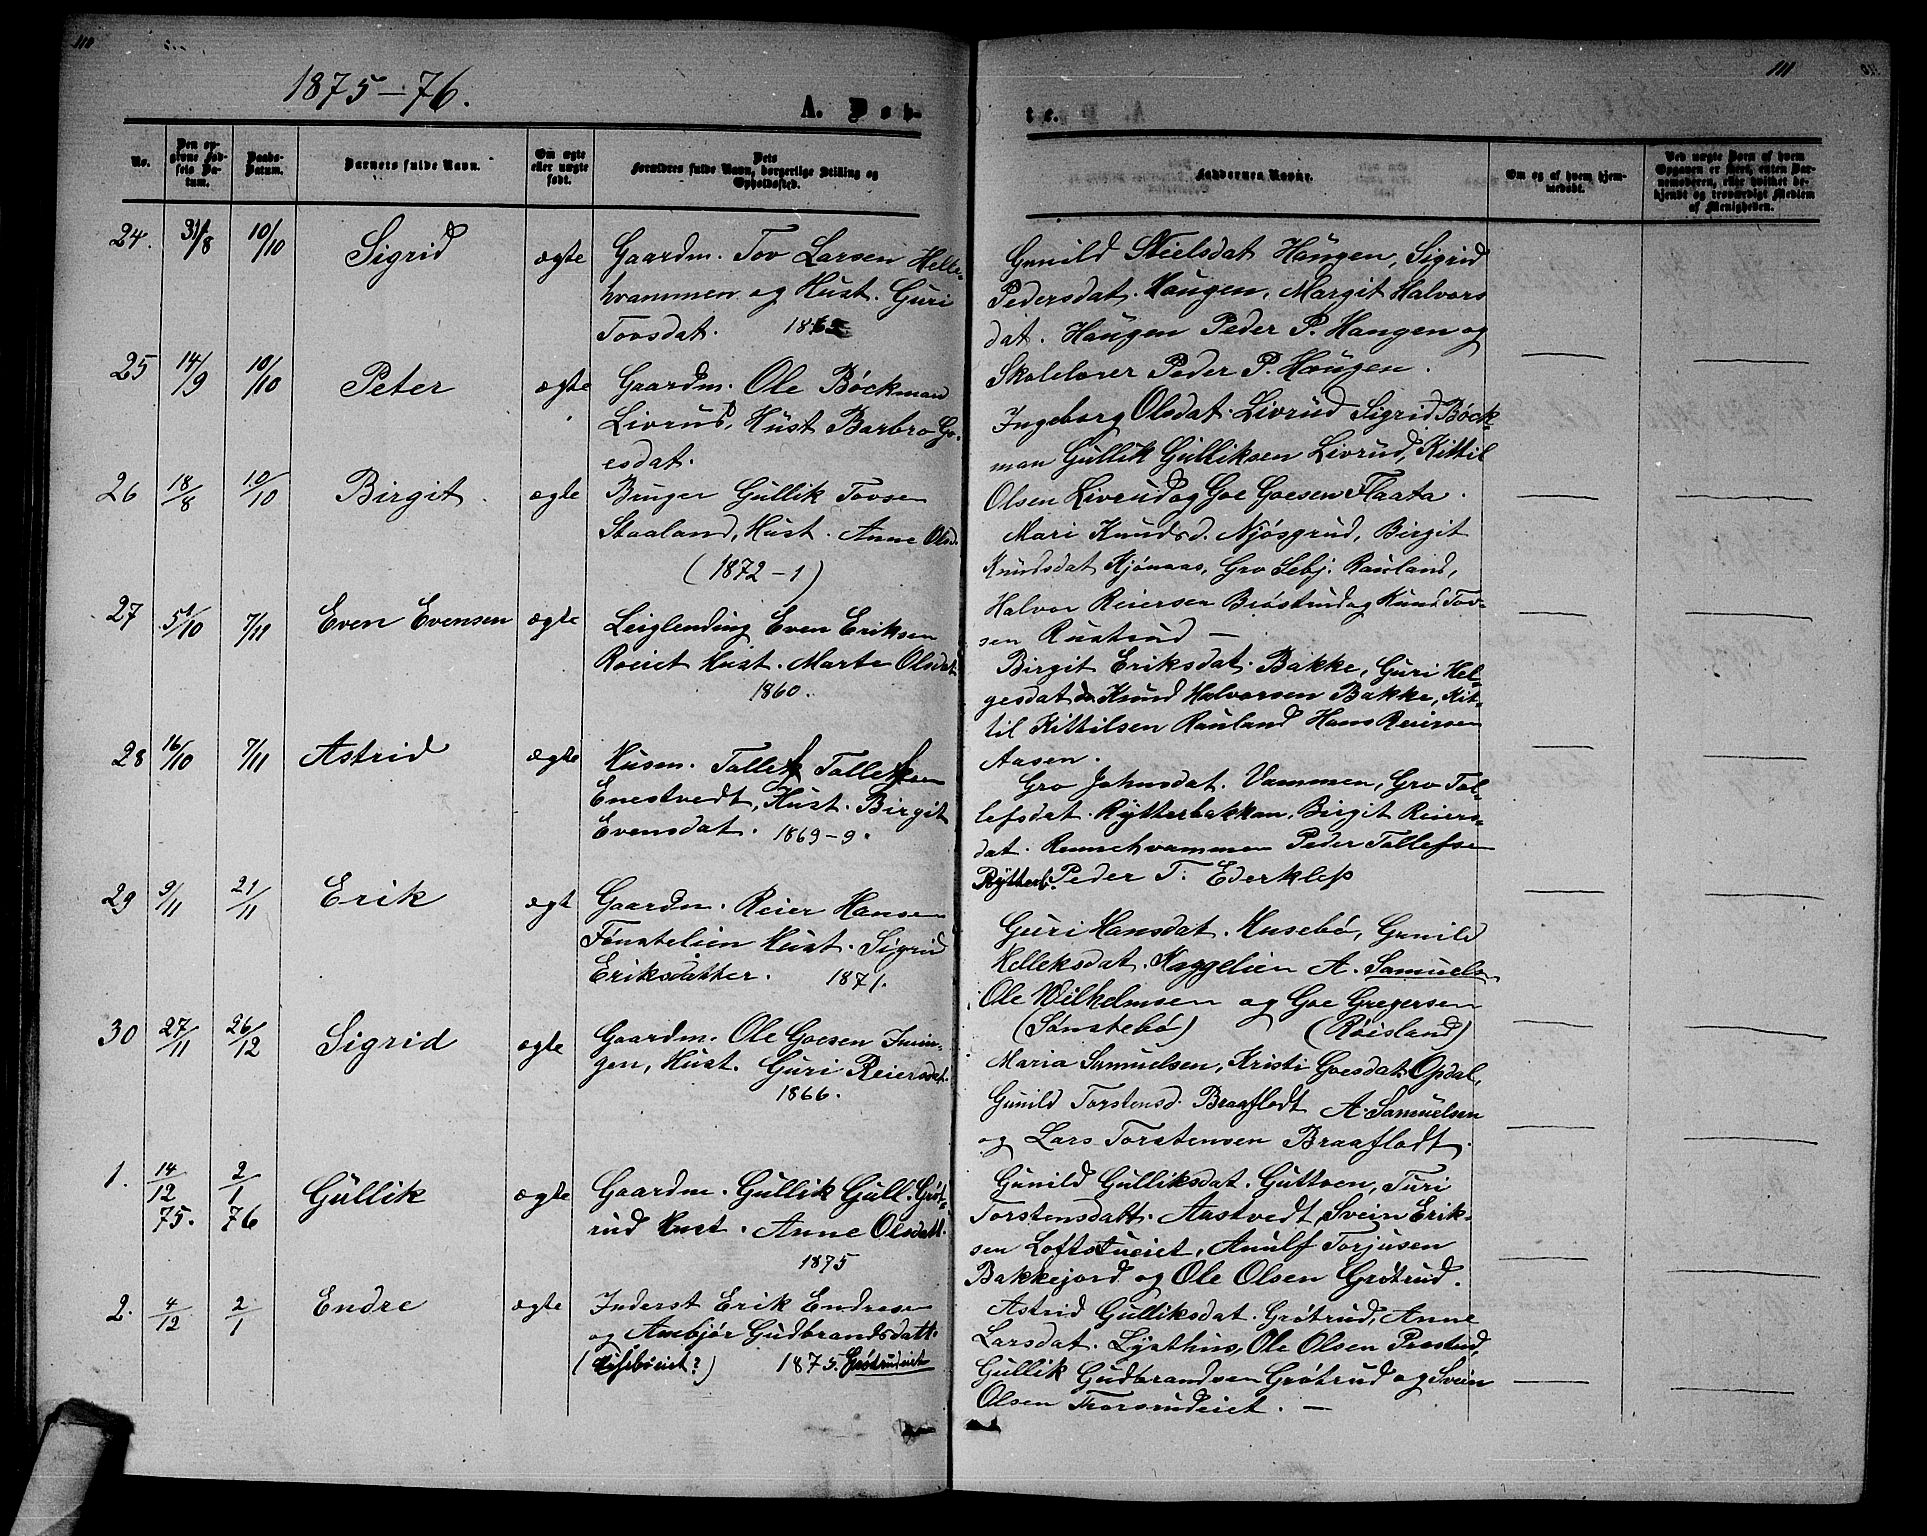 110
1875-76.
A. Døb-
No.
Den opgivne Fødsels Datum.
Daabs-Datum.
Barnets fulde Navn.
Om ægte eller uægte født.
Forældres fulde Navn, Dets borgerlige Stilling og Opholdssted.
24. 31/8 10/10 Sigrid ægte Gaardm. Tov Larsen Helle-
hvammen og Hust. Guri
Tovsdat.
25 14/9 10/10 Peter ægte Gaardm. Ole Böckman
Livrud, Hust Barbro Go-
esdat.
26 18/8 10/10 Birgit. ægte Bruger Gullik Tovse
Staaland, Hust. Anne Olsd.
(1872-1)
27 5/10 7/11 Even Evensen ægte Leiglending Even Eriksen
Roeiet Hust. Marte Olsdat
1860.
28 16/10 7/11 Astrid ægte Husm. Tollef Tollefsen
Enestvedt, Hust. Birgit
Evensdat. 1869-9.
29 9/11 21/11 Erik ægt Gaardm. Reier Hansen
Fönstelien Hust. Sigrid
Eriksdatter. 1871.
30 27/11 26/12 Sigrid ægte Gaardm. Ole Goesen Imin-
gen, Hust. Guri Reiersdat.
1866.
1. 14/12 75. 2/1 76 Gullik ægte Gaardm. Gullik Gull. Gröt-
rud Hust. Anne Olsdatt.
1875
2. 4/12 2/1 Endre ægte Inderst Erik Endresen
og Ambjör Gudbrandsdatt.
1875. Grötrudeiet
111
te.
Faddernes Navne.
Om og af hvem hjemmedøbt.
Ved uægte Børn af hvem Opgaven er skeet, enten Barnemoderen, eller hvilket bekjendt og troværdigt Medlem af Menigheden.
Gunild Nielsdat Haugen, Sigrid
Pedersdat. Haugen, Margit Halvors
dat. Haugen Peder P. Haugen og
Skolelærer Peder P. Haugen.
Ingeborg Olsdat. Livrud Sigrid Böck-
man Gullik Gulliksen Livrud, Kittil
Olsen Livrud og Goe Goesen Flaata.
Mari Knudsd. Njösgrud, Birgit
Knudsdat Kjönaas, Gro Sebj. Rauland,
Halvor Reiersen Bröstrud og Knud Tov-
sen Rustrud —
Birgit Eriksdat. Bakke, Guri Hel-
gesdat Knud Halvorsen Bakke, Kit-
til Kittilsen Rauland Hans Reiersen
Aasen.
Gro Johnsdat. Vammen, Gro Tol-
lefsdat. Rytterbakken, Birgit Reiers-
dat. Rennehvammen Peder Tollefse
Rytterb. Peder T. Ederklep
Guri Hansdat. Husebö, Gunild
Helleksdat. Kaggelien A. Samuels
Ole Wilhelmsen og Goe Gregersen
(Sönstebö) (Röisland)
Maria Samuelsen, Kristi Goesdat Opdal,
Gunild Torstensd. Braaflodt A. Samuelsen
og Lars Torstensen Braaflodt.
Gunild Gulliksdat. Guttoen, Turi
Torstensdatt. Aastvedt, Svein Erik-
sen Loftstueiet, Anulf Torjusen
Bakkejord og Ole Olsen Grötrud.
Astrid Gulliksdat. Grötrud, Anne
Larsdat. Lysthus, Ole Olsen Prestrud,
Gullik Gudbrandsen Grötrud og Svein
Olsen Frorsrudeiet. —